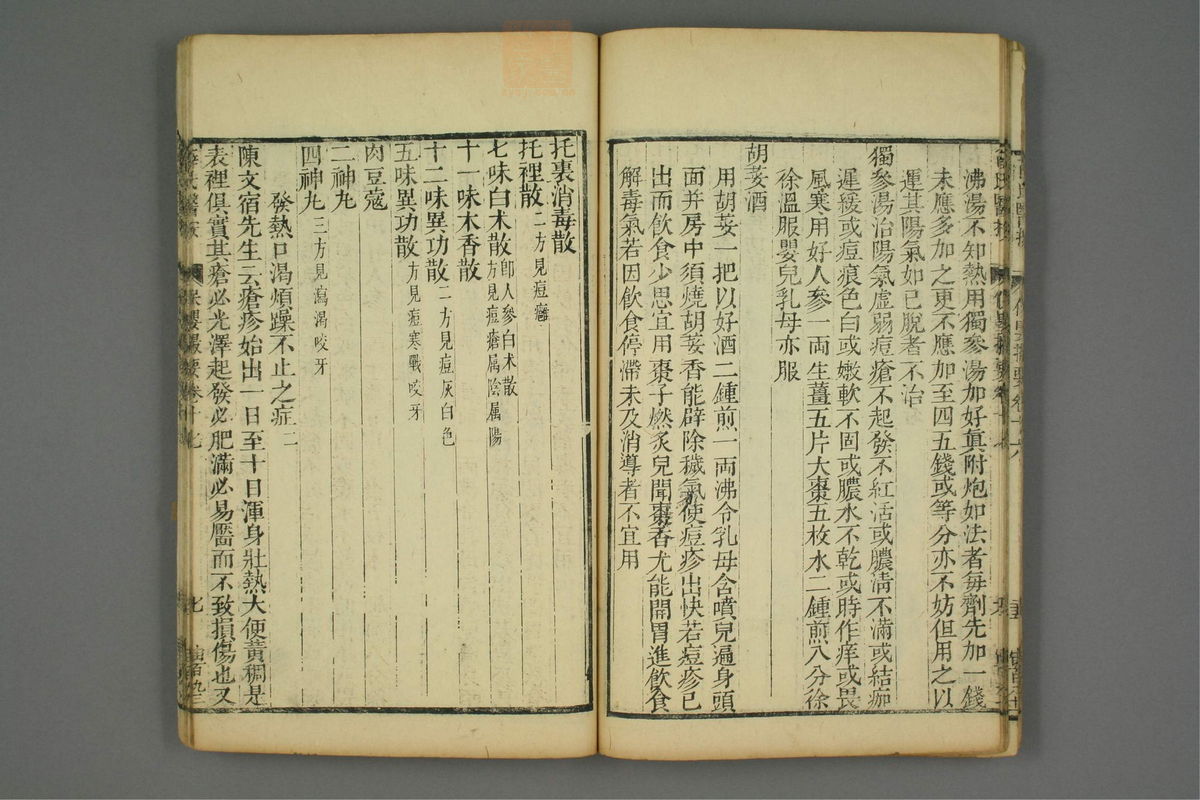 沸湯不知熱用獨參湯加好真附炮如法者每劑先加一錢
未應多加之更不應加至四五錢或等分亦不妨但用之以
運其陽氣如已脫者不治
獨參湯治陽氣虛弱痘瘡不起發不紅活或膿清不滿或結痂
遲緩或痘痕色白或嫩軟不固或膿水不乾或時作痒或畏
風寒用好人參一兩生薑五片大棗五枚水二鍾煎八分徐
徐溫服嬰兒乳母亦服
胡荽酒
用胡荽一把以好酒二鍾煎一兩沸令乳母含噴兒遍身頭
面并房中須燒胡荽香能辟除穢氣使痘疹出快若痘疹已
出而飲食少思宜用棗子燃炙兒聞棗香尤能開胃進飲食
解毒氣若因飲食停滯未及消導者不宜用
托裏消毒散
托裡散二方見痘癰
七味白朮散即人參白朮散方見痘瘡属陰属陽
十一味木香散
十二味異功散二方見痘灰白色
五味異功散方見痘寒戰咬牙
肉豆蔻
二神丸
四神丸三方見瀉渴咬牙
發熱口渴煩躁不止之症二
陳文宿先生云瘡疹始出一日至十日渾身壯熱大便黃稠是
表裡俱實其瘡必光澤起發必肥滿必易靨而不致損傷也又
薛氏醫按 保嬰撮要卷十七